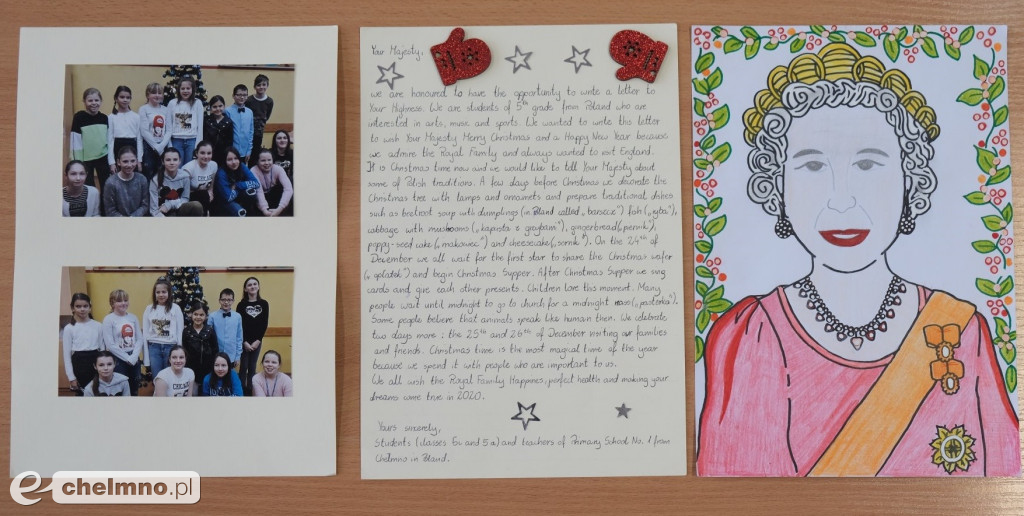 Your Majesty,
we are honoured to have the opportunity to write a letter to
Your Highness. We are students of 5th grade from Poland who are
interested in arts, music and sports. We wanted to write the letter
to wish Your Majesty Merry Christmas and a Happy New Year because
we admire the Royal Family and always wanted to visit England.
It is Christmas time now and we would like to tell Your Majesty about
some of Polish traditions. A few days before Christmas we decorate the
Christmas tree with lamps and ornaments and prepare traditional dishes
such as beetroot soup with dumplings (in Poland called „barszcz") fish („ryba"),
cabbage with mushrooms („kapusta z grzybami"), gingerbread („piernik"),
poppy-seed cake („makowiec") and cheesecake („sernik"). On the 24th of
December we all wait for the first star to share the Christmas wafer
(„opłatek") and begin Christmas Supper. After Christmas Supper we sing
carols and give each other presents. Children love this moment. Many
people wait until midnight to go to church for a midnight mass („pasterka").
Some people believe that animals speak like human then. We celebrate
two days more: the 25th and 26th of December visiting our families
and friends. Christmas time is the most magical time of the year
because we spend it with people who are important to us.
We all wish the Royal Family Happines, perfect health and making your
dreams come true in 2020.
Yours sincerely,
Students (classes 5c and 5a) and teachers of Primary School No. 1 from
Chełmno in Poland.
e-chelmno.pl